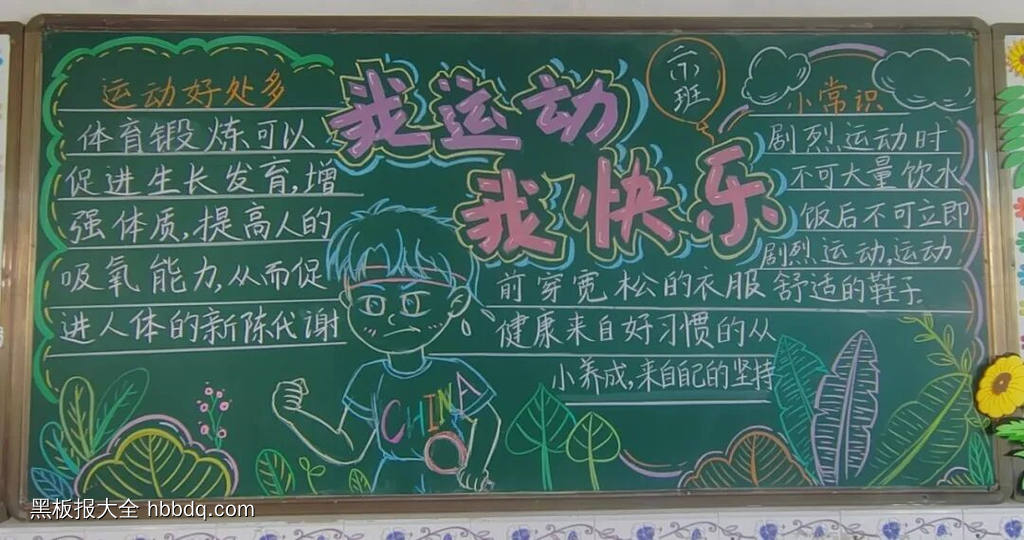 运动好处多
体育锻炼可以
促进生长发育,增
强体质,提高人的
吸氧能力,从而促
进人体的新陈代谢
我运动
我快乐
六(1)班
小常识
剧烈运动时
不可大量饮水
饭后不可立即
剧烈运动,运动
前穿宽松的衣服舒适的鞋子
健康来自好习惯的从
小养成,来自自己的坚持
CHINA
黑板报大全 hbbdq.com